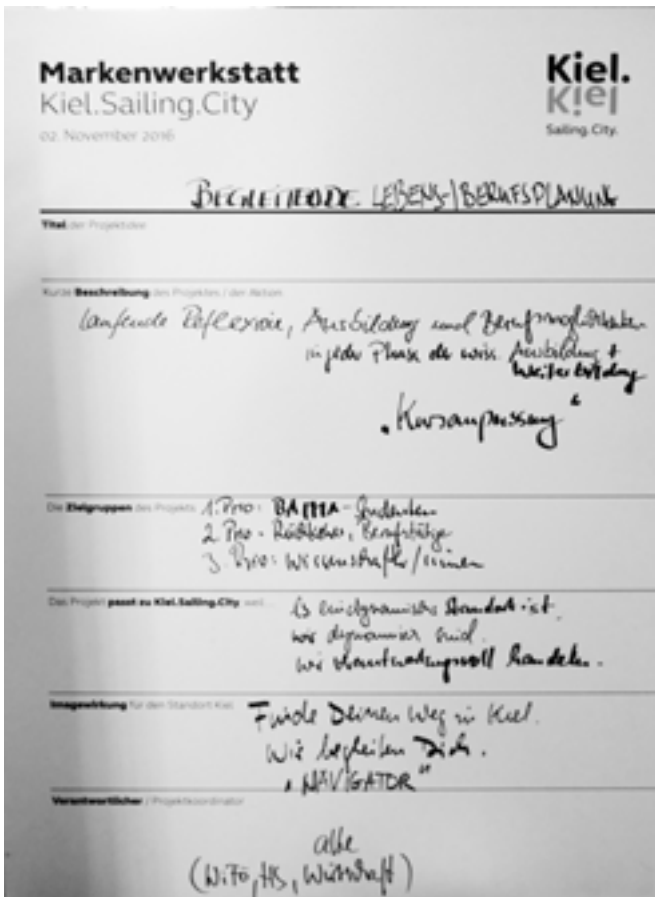 Markenwerkstatt
Kiel.Sailing.City
02. November 2016
Kiel.
Kiel
Sailing.City.
BEGLEITENDE LEBENS-/BERUFSPLANUNG
Titel der Projektidee
Kurze Beschreibung des Projektes / der Aktion
laufende Reflexion, Ausbildung und Berufsmöglichkeiten
in jeder Phase der wiss. Ausbildung +
Weiterbildung
„Kursanpassung“
Die Zielgruppen des Projekts 1. Prio: BA/MA-Studenten
2. Prio - Rückkehrer, Berufstätige
3. Prio: Wissenschaftler/innen
Das Projekt passt zu Kiel.Sailing.City, weil... es ein dynamischer Standort ist.
wir dynamisch sind.
wir verantwortungsvoll handeln.
Imagewirkung für den Standort Kiel Finde Deinen Weg in Kiel.
Wir begleiten Dich.
„NAVIGATOR“
Verantwortlicher / Projektkoordinator
alle
(WiFö, HS, Wirtschaft)